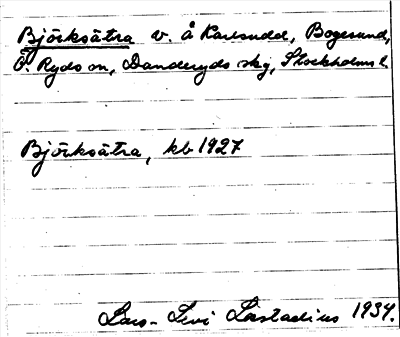 Björksätra v. å Karlsudd, Bogesund,
Ö. Ryds sn, Danderyds skg, Stockholms l.
Björksätra, kb 1927
Lars-Levi Læstadius 1934.